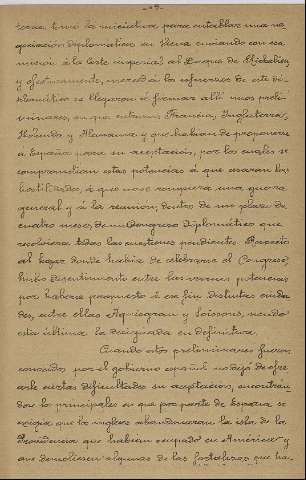 tomó la iniciativa para entablar una ne-
gociación diplomática en Viena enviando con esa
misión á la Corte imperial al Duque de Richelieu
y efectivamente, merced á los esfuerzos de este di-
plomático se llegaron á firmar allí unos preli-
minares, en que entraban Francia, Inglaterra,
Holanda y Alemania y que habían de proponerse
á España para su aceptación, por los cuales se
comprometían estas potencias á que cesaran las
hostilidades, á que no se rompiera una guerra
general y á la reunión, dentro de un plazo de
cuatro meses, de un Congreso diplomático que
resolviera todas las cuestiones pendientes. Respecto
al lugar donde había de celebrarse el Congreso,
hubo disentimiento entre las varias potencias
por haberse propuesto á ese fin distintas ciuda-
des, entre ellas Aquisgran y Soissons, siendo
esta última la designada en definitiva.
Cuando estos preliminares fueron
conocidos por el gobierno español no dejó de ofre-
cerle ciertas dificultades su aceptación, encontrán-
dose las principales en que por parte de España se
exigía que los ingleses abandonaran la isla de la
Providencia que habían ocupado en América y
que demoliesen algunas de las fortalezas que ha-